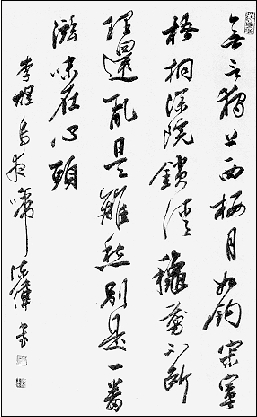 無言獨上西樓月如鈎寂寞
梧桐深院鎖清穐剪不断
理還亂是離愁別是一番
滋味在心頭
李煜烏夜啼